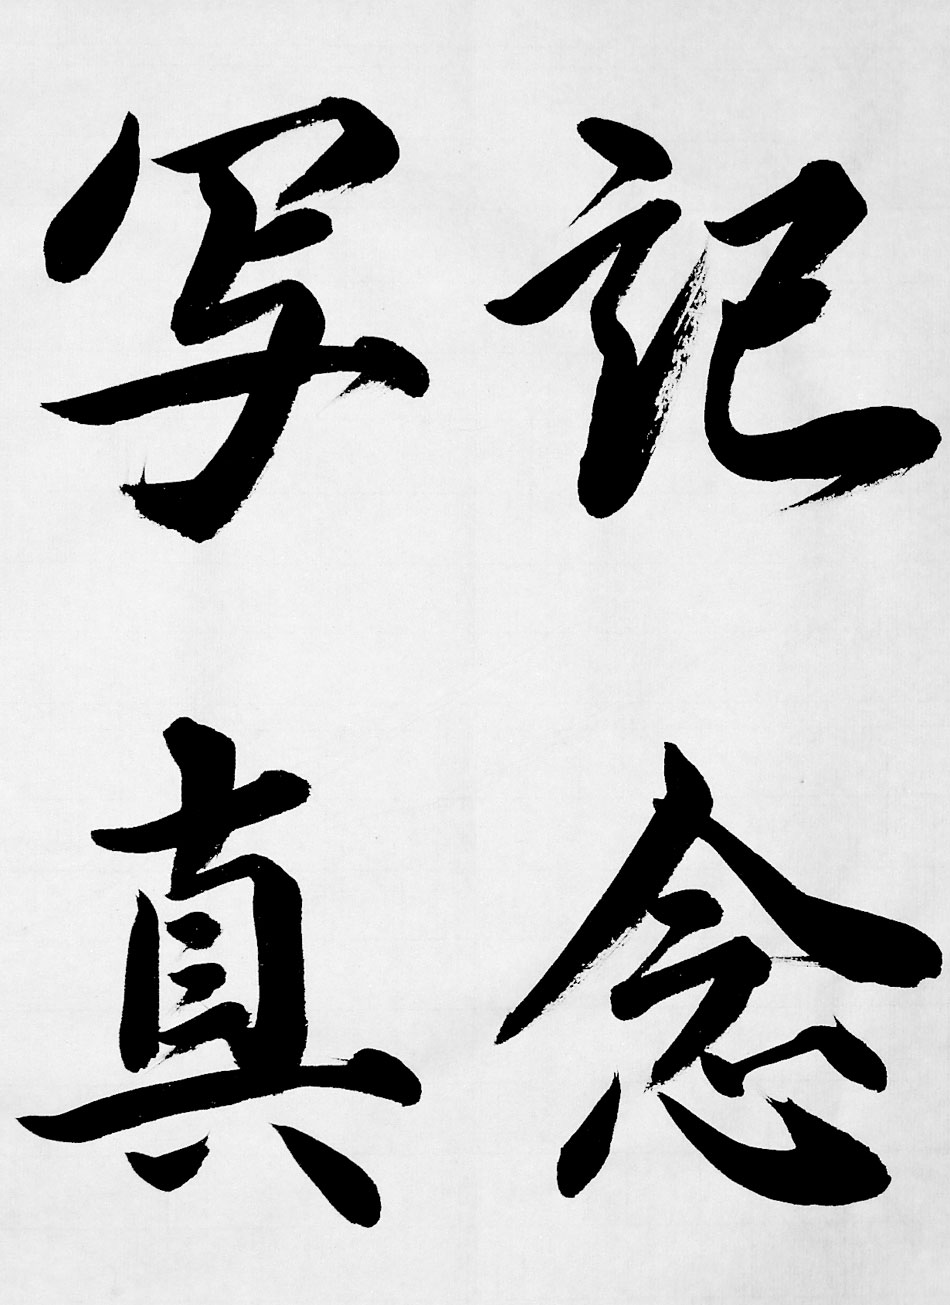 記念
写真